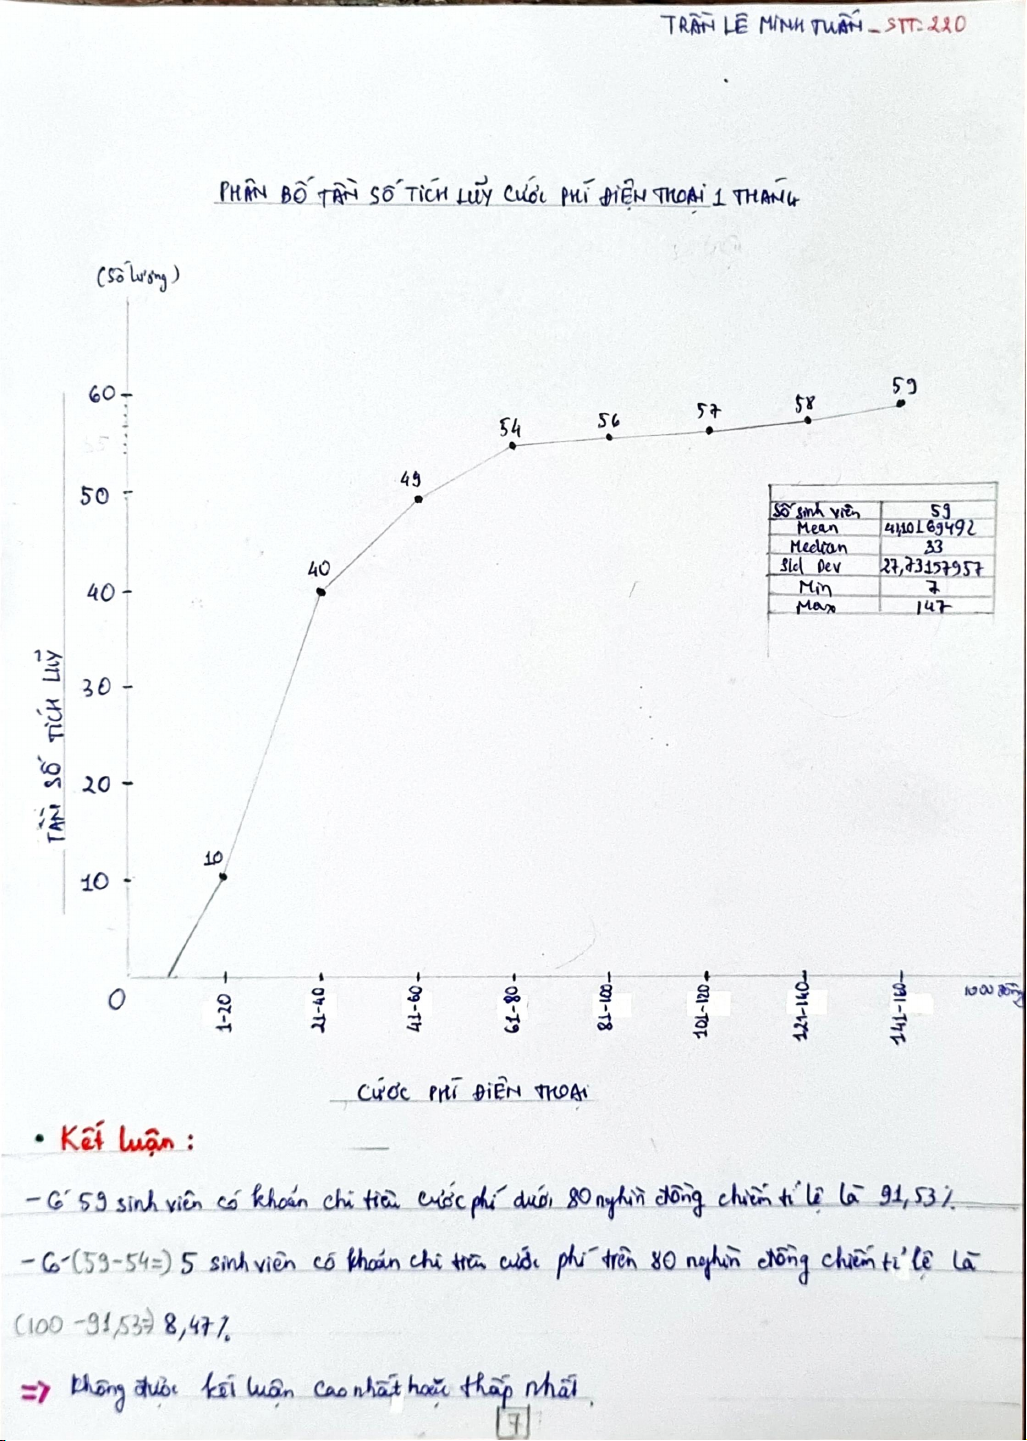 TRẦN LÊ MINH TUẤN - STT: 220
PHÂN BỐ TẦN SỐ TÍCH LŨY CƯỚC PHÍ ĐIỆN THOẠI 1 THÁNG
(Số lượng)
60
50
40
30
20
10
0
TẦN SỐ TÍCH LŨY
10
40
49
54
56
57
58
59
Số sinh viên 59
Mean 41,10169492
Median 33
Std Dev 27,73157957
Min 7
Max 147
1-20
21-40
41-60
61-80
81-100
101-120
121-140
141-160
1000 đồng
CƯỚC PHÍ ĐIỆN THOẠI
• Kết luận :
- Có 59 sinh viên có khoản chi tiêu cước phí dưới 80 nghìn đồng chiếm tỉ lệ là 91,53%
- Có (59-54=) 5 sinh viên có khoản chi tiêu cước phí trên 80 nghìn đồng chiếm tỉ lệ là
(100 - 91,53=) 8,47%.
=> Không được kết luận cao nhất hoặc thấp nhất.
7